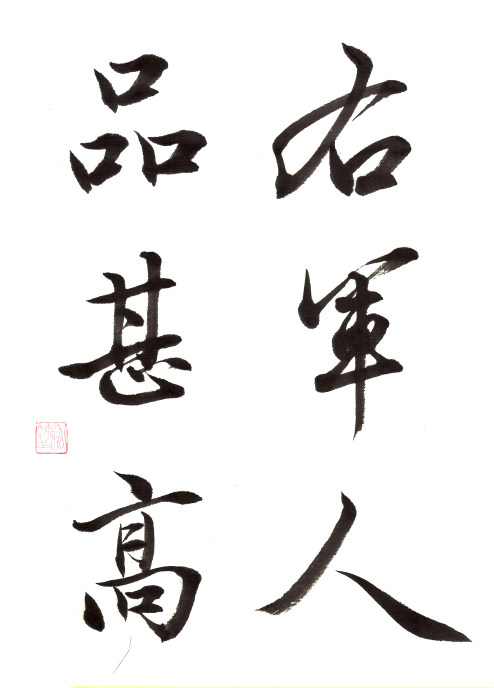 右軍人
品甚高